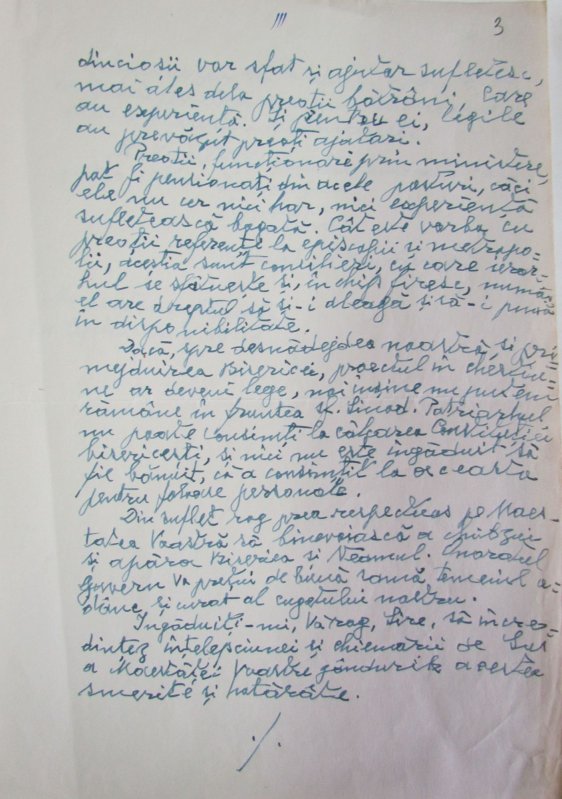 III
3
dincioșii vor sfat și ajutor sufletesc,
mai ales dela preoții bătrâni, care
au experiență. Și pentru ei, legile
au prevăzut preoți ajutori.
Preoții, funcționare prin ministere,
pot fi pensionați din acele posturi, căci
ele nu cer nici har, nici experiență
sufletească bogată. Cât este vorba cu
preoții referenți la episcopii și metropo=
lii, aceștia sunt consilieri, cu care ierar=
hul se sfătuește și, în chip firesc, numai
el are dreptul să și-i aleagă și să-i pună
în disponibilitate.
Dacă, spre desnădejdea noastră, și pri=
mejduirea Bisericei, proectul în chestiu=
ne ar deveni lege, noi înșine nu putem
rămâne în fruntea Sf. Sinod. Patriarhul
nu poate consimți la călcarea Constituției
bisericești, și nici nu este îngăduit să
fie bănuit, că a consimțit la aceasta
pentru foloase personale.
Din suflet rog prea respectuos pe Maes-
tatea Voastră să binevoiască a chibzui
și apăra Biserica și Neamul. Onoratul
Guvern va prețui de bună seamă temeiul a=
dânc, și curat al cugetului nostru.
Îngăduiți-mi, Vă rog, Sire, să încre=
dințez înțelepciunei și chemării de Sus
a Maestăței Voastre gândurile acestea
smerite și hotărâte.
./.